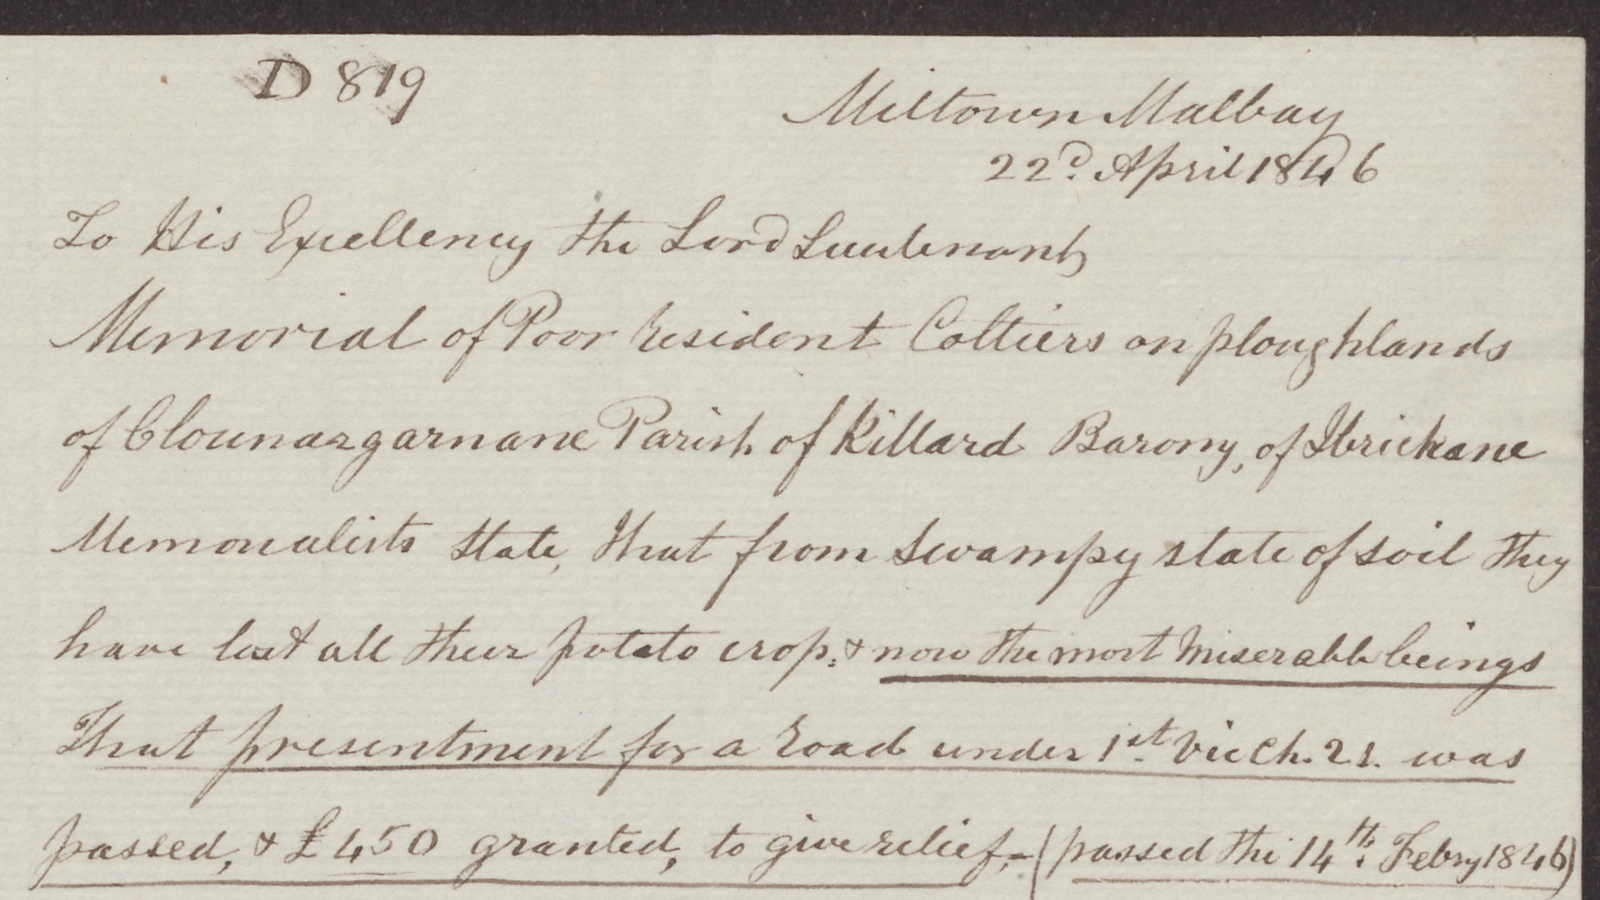 D 819
Miltown Malbay
22d. April 1846
To His Excellency the Lord Lieutenant
Memorial of Poor resident Cottiers on ploughlands
of Clounazgarnane Parish of Killard Barony, of Ibrickane
Memorialists State, that from swampy state of soil they
have lost all their potato crop, & now the most miserable beings
That presentment for a road under 1st. Vic Ch. 21. was
passed, & £450 granted, to give relief,- (passed the 14th. Febry 1846)